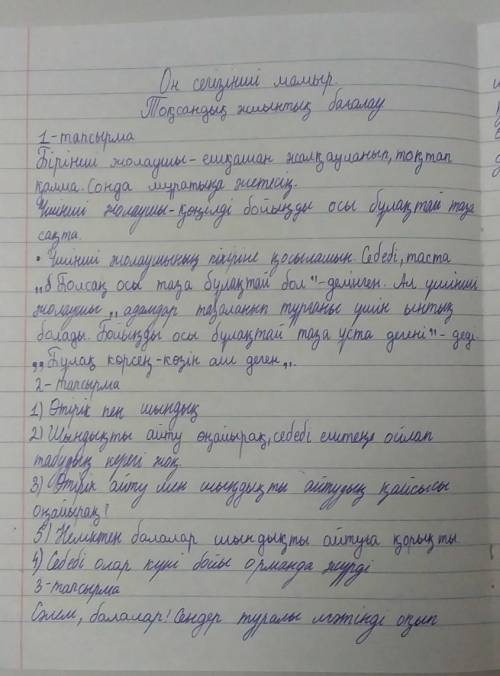 Он сегізінші мамыр.
Тоқсандық жиынтық бағалау
1-тапсырма
Бірінші жолаушы-ешқашан жалқауланып, тоқтап
қалма. Сонда мұратыңа жетесің.
Үшінші жолаушы-көңілді бойыңды осы бұлақтай таза
сақта.
• Үшінші жолаушының пікіріне қосыламын. Себебі, таста
„Болсаң осы таза бұлақтай бол"-делінген. Ал үшінші
жолаушы „адамдар тазаланып тұрғаны үшін ынтық
болады. Бойыңды осы бұлақтай таза ұста дегені"- деді
„Бұлақ көрсең-көзін аш деген„.
2-тапсырма
1) Өтірік пен шындық
2) Шындықты айту оңайырақ, себебі ештеңе ойлап
табудың керегі жоқ.
3) Өтірік айту мен шындықты айтудың қайсысы
оңайырақ?
5) Неліктен балалар шындықты айтуға қорықты
4) Себебі олар күні бойы орманда жүрді
3-тапсырма
Сәлем, балалар! Сендер туралы мәтінді оқып